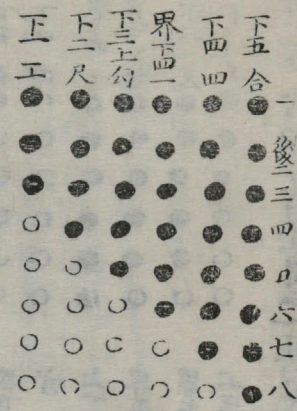 一 後二 三 四 六 七 八
下五 合
下四 四
界 下四 一
下三 上勾
下二 尺
下一 工